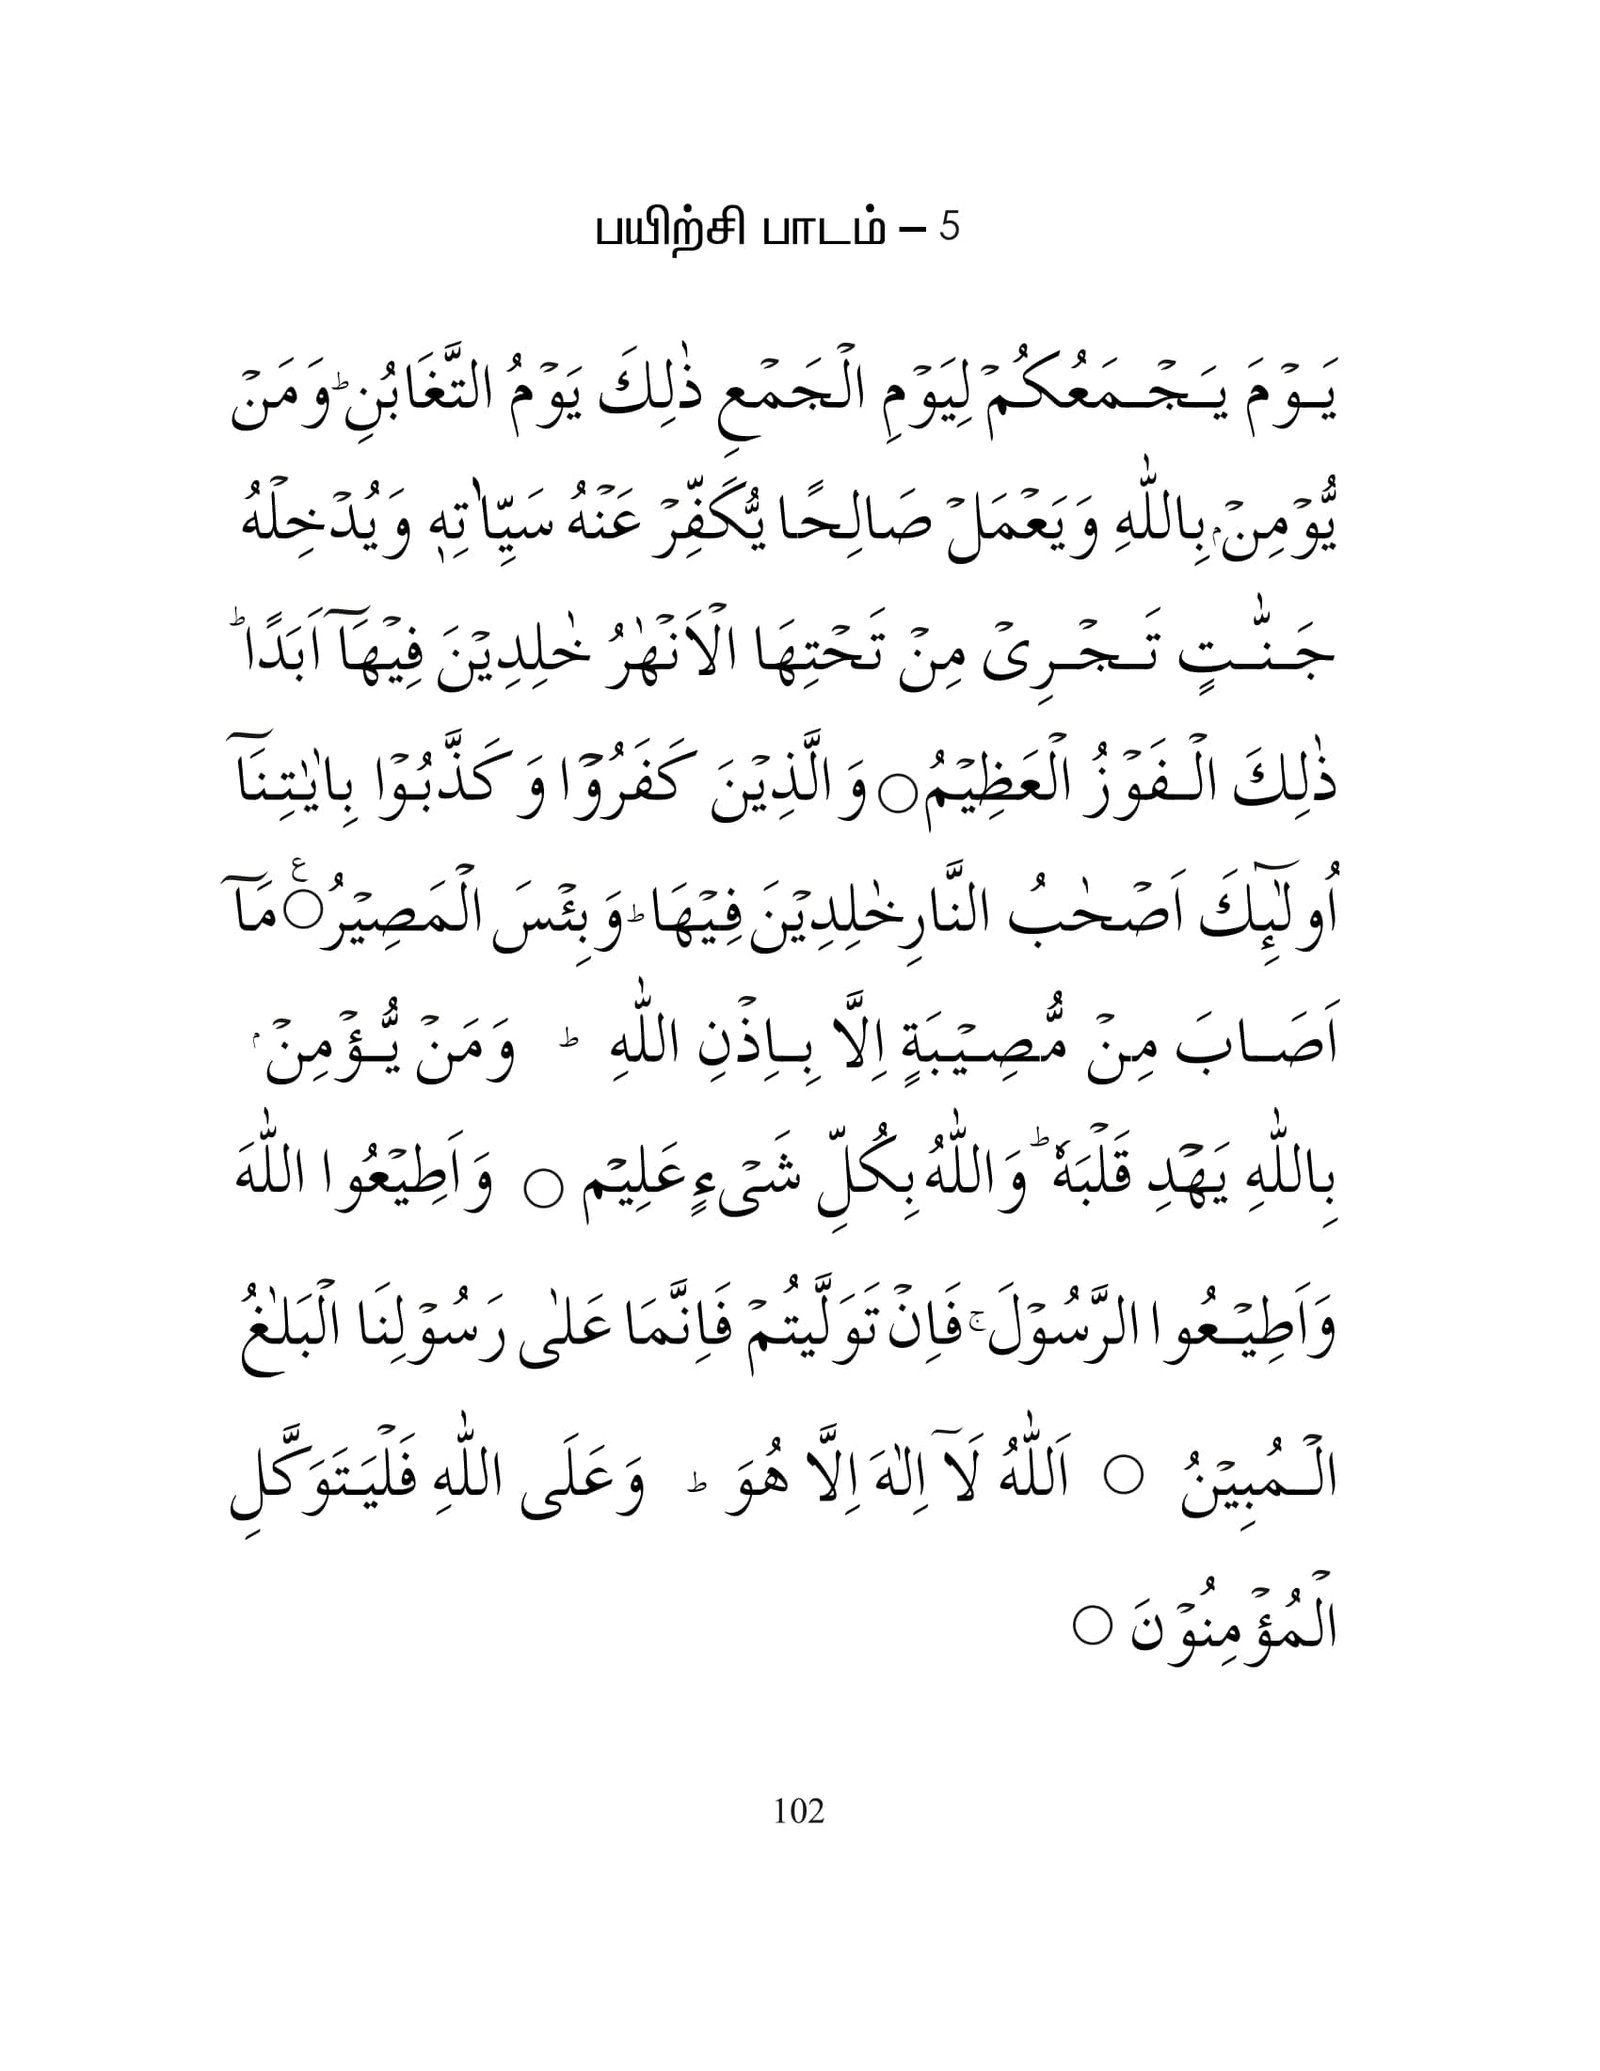 பயிற்சி பாடம் – 5
يَـوْمَ يَـجْـمَعُكُمْ لِيَوْمِ الْجَمْعِ ذٰلِكَ يَوْمُ التَّغَابُنِ ؕ وَمَنْ
يُّوْمِنْۢ بِاللّٰهِ وَيَعْمَلْ صَالِحًا يُّكَفِّرْ عَنْهُ سَيِّاٰتِهٖ وَيُدْخِلْهُ
جَـنّٰـتٍ تَـجْـرِىْ مِنْ تَحْتِهَا الْاَنْهٰرُ خٰلِدِيْنَ فِيْهَاۤ اَبَدًا ؕ
ذٰلِكَ الْـفَوْزُ الْعَظِيْمُ ○ وَالَّذِيْنَ كَفَرُوْا وَكَذَّبُوْا بِاٰيٰتِنَاۤ
اُولٰٓٮِٕكَ اَصْحٰبُ النَّارِ خٰلِدِيْنَ فِيْهَا ؕ وَبِئْسَ الْمَصِيْرُ ○ۧ مَاۤ
اَصَـابَ مِنْ مُّصِيْبَةٍ اِلَّا بِـاِذْنِ اللّٰهِ ؕ وَمَنْ يُّـؤْمِنْۢ
بِاللّٰهِ يَهْدِ قَلْبَهٗ ؕ وَاللّٰهُ بِكُلِّ شَىْءٍ عَلِيْم ○ وَاَطِيْعُوا اللّٰهَ
وَاَطِيْـعُوا الرَّسُوْلَ ۚ فَاِنْ تَوَلَّيتُمْ فَاِنَّمَا عَلٰى رَسُوْلِنَا الْبَلٰغُ
الْـمُبِيْنُ ○ اَللّٰهُ لَاۤ اِلٰهَ اِلَّا هُوَ ؕ وَعَلَى اللّٰهِ فَلْيَتَوَكَّلِ
الْمُؤْمِنُوْنَ ○
102